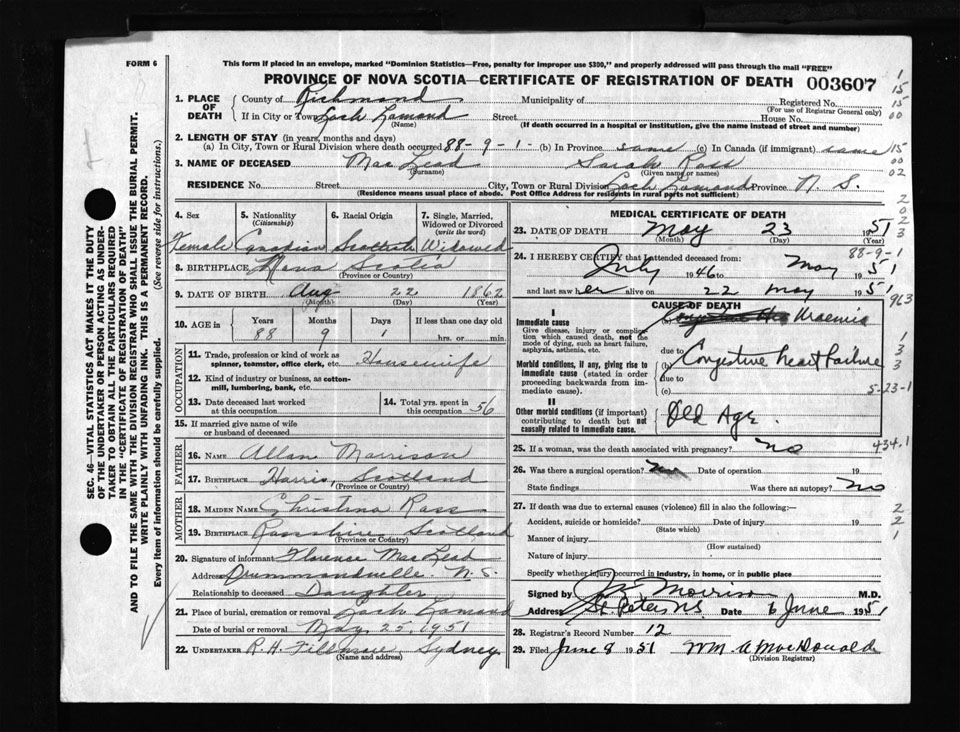 FORM 6
This form if placed in an envelope, marked "Dominion Statistics—Free, penalty for improper use $300," and properly addressed will pass through the mail "FREE"
PROVINCE OF NOVA SCOTIA—CERTIFICATE OF REGISTRATION OF DEATH 003607
1. PLACE OF DEATH { County of Richmond Municipality of Registered No.
(For use of Registrar General only)
If in City or Town Loch Lomond Street House No.
(Name) (If death occurred in a hospital or institution, give the name instead of street and number)
2. LENGTH OF STAY (in years, months and days)
(a) In City, Town or Rural Division where death occurred 88-9-1- (b) In Province same (c) In Canada (if immigrant) same
3. NAME OF DECEASED MacLead Sarah Ross
(Surname) (Given name or names)
RESIDENCE No. Street City, Town or Rural Division Loch Lomond Province N. S.
(Residence means usual place of abode. Post Office Address for residents in rural parts not sufficient)
1
15
15
00
15
00
02
2
0
2
3
SEC. 46—VITAL STATISTICS ACT MAKES IT THE DUTY
OF THE UNDERTAKER OR PERSON ACTING AS UNDER-
TAKER TO OBTAIN ALL THE PARTICULARS REQUIRED
IN THE "CERTIFICATE OF REGISTRATION OF DEATH"
AND TO FILE THE SAME WITH THE DIVISION REGISTRAR WHO SHALL ISSUE THE BURIAL PERMIT.
WRITE PLAINLY WITH UNFADING INK. THIS IS A PERMANENT RECORD.
Every item of information should be carefully supplied. (See reverse side for instructions.)
4. Sex 5. Nationality (Citizenship) 6. Racial Origin 7. Single, Married, Widowed or Divorced (write the word)
Female Canadian Scottish Widowed
8. BIRTHPLACE Nova Scotia
(Province or Country)
9. DATE OF BIRTH Aug 22 1862
(Month) (Day) (Year)
10. AGE in { Years Months Days If less than one day old
88 9 1 hrs. or min.
OCCUPATION
11. Trade, profession or kind of work as spinner, teamster, office clerk, etc. Housewife
12. Kind of industry or business, as cotton-mill, lumbering, bank, etc.
13. Date deceased last worked at this occupation 14. Total yrs. spent in this occupation 56
15. If married give name of wife or husband of deceased
FATHER
16. NAME Allan Morrison
17. BIRTHPLACE Harris, Scotland
(Province or Country)
MOTHER
18. MAIDEN NAME Christina Ross
19. BIRTHPLACE Rosshire Scotland
(Province or Country)
20. Signature of informant Florence MacLead
Address Drummondville. N.S.
Relationship to deceased Daughter
21. Place of burial, cremation or removal Loch Lomond
Date of burial or removal May 25, 1951
22. UNDERTAKER R. H. Fillmore, Sydney
(Name and address)
MEDICAL CERTIFICATE OF DEATH
23. DATE OF DEATH May 23 1951
(Month) (Day) (Year)
88-9-1
24. I HEREBY CERTIFY that I attended deceased from
July 1946 to May 1951
and last saw her alive on 22 May 1951
963
CAUSE OF DEATH
I
Immediate cause (a) Uraemia
Give disease, injury or complication which caused death, not the mode of dying, such as heart failure, asphyxia, asthenia, etc.
due to
(b) Congestive heart failure
1
3
3
Morbid conditions, if any, giving rise to immediate cause (stated in order proceeding backwards from immediate cause).
due to
(c)
5-23-1
II
Other morbid conditions (if important) contributing to death but not causally related to immediate cause.
Old Age.
434.1
25. If a woman, was the death associated with pregnancy? no
26. Was there a surgical operation? no Date of operation 19
State findings Was there an autopsy? No
27. If death was due to external causes (violence) fill in also the following:—
Accident, suicide or homicide? Date of injury 19
(State which)
Manner of injury
(How sustained)
Nature of injury
2
2
1
Specify whether injury occurred in industry, in home, or in public place
Signed by Morrison M.D.
Address St. Peters NS Date 6 June 1951
28. Registrar's Record Number 12
29. Filed June 8 1951 Wm. A MacDonald
(Division Registrar)